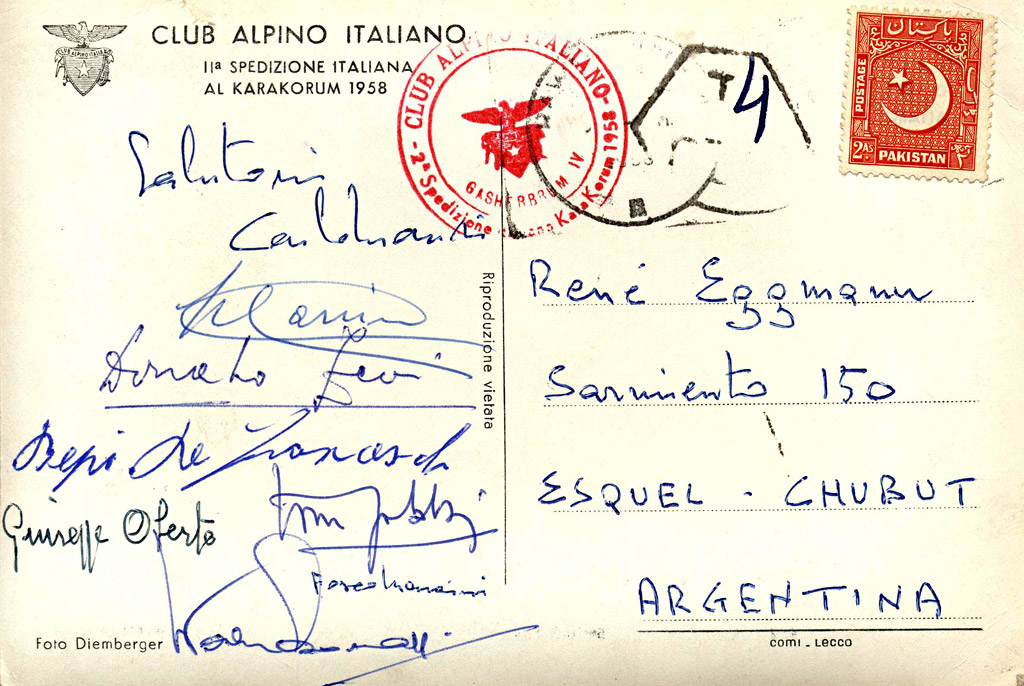 CLUB ALPINO ITALIANO
IIª SPEDIZIONE ITALIANA
AL KARAKORUM 1958
CLUB ALPINO ITALIANO - 2ª Spedizione Italiana KaraKorum 1958
GASHERBRUM IV
T
4
پاکستان
POSTAGE
2AS
PAKISTAN
Saluti
Donato Zeni
Bepi De Francesch
Toni Gobbi
Giuseppe Oberto
Fosco Maraini
Riproduzione vietata
René Eggmann
Sarmiento 150
ESQUEL - CHUBUT
ARGENTINA
Foto Diemberger
comi - Lecco